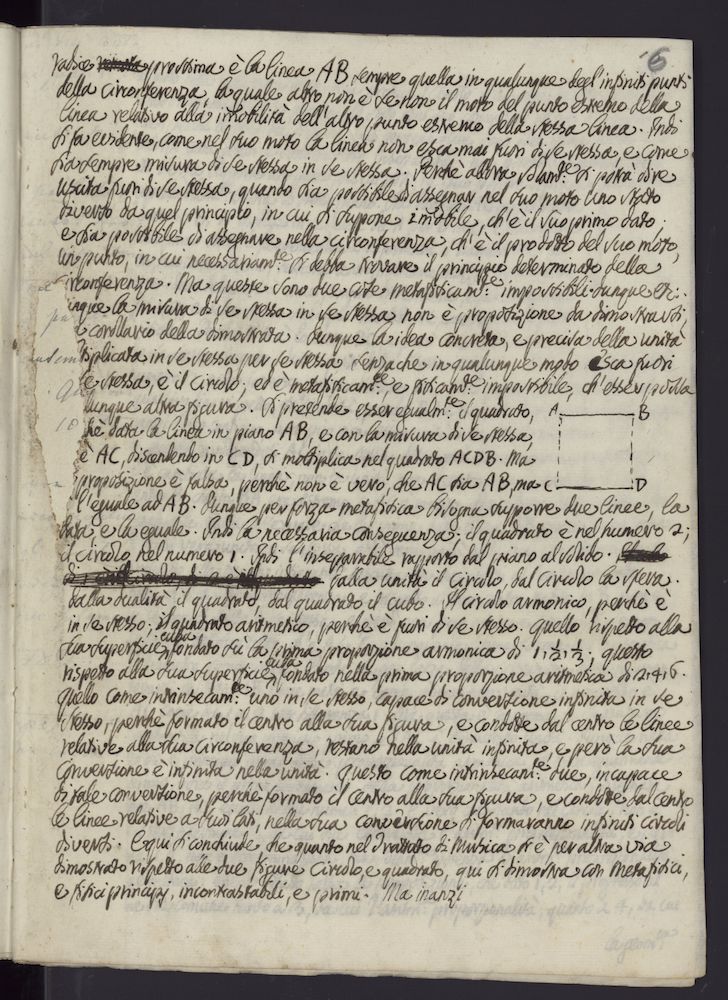 6
radice prossima è la linea AB sempre quella in qualunque degl'infiniti punti
della circonferenza, la quale altro non è se non il moto del punto estremo della
linea relativo alla immobilità dell'altro punto estremo della stessa linea. Indi
si fa evidente, come nel suo moto la linea non esca mai fuori di se stessa, e come
sia sempre misura di se stessa in se stessa. Perchè allora solam.te si potrà dire
uscita fuori di se stessa, quando sia possibile di assegnar nel suo moto uno stato
diverso da quel principio, in cui si suppone immobile, ch'è il suo primo dato.
e sia possibile di assegnare nella circonferenza, ch'è il prodotto del suo moto,
un punto, in cui necessariam.te si debba trovare il principio determinato della
circonferenza. Ma queste sono due cose metafisicam.te impossibili. dunque etc:
unque la misura di se stessa in se stessa non è proposizione da dimostrarsi
è corollario della dimostrata. dunque la idea concreta, e precisa della unità
tiplicata in se stessa per se stessa senza che in qualunque modo esca fuori
se stessa, è il circolo; ed è metafisicam.te, e fisicam.te impossibile, ch'esser possa
lunque altra figura. Si pretende esser egualm.te il quadrato,
hè data la linea in piano AB, e con la misura di se stessa
è AC, discendendo in CD, si moltiplica nel quadrato ACDB. Ma
proposizione è falsa, perchè non è vero, che AC sia AB, ma
è l'eguale ad AB. dunque per forza metafisica bisogna supporre due linee, la
data, e la eguale. Indi la necessaria conseguenza; il quadrato è nel numero 2;
il circolo nel numero 1. Indi l'inseparabile rapporto dal piano al solido.
dalla unità il circolo, dal circolo la sfera.
dalla dualità il quadrato, dal quadrato il cubo. Il circolo armonico, perchè è
in se stesso; il quadrato aritmetico, perchè è fuori di se stesso. Quello rispetto alla
cuba
sua superficie, fondato su la prima proporzione armonica di 1, 1/2, 1/3; questo
cuba
rispetto alla sua superficie, fondato nella prima proporzione aritmetica di 2. 4. 6.
Quello come intrinsecam.te uno in se stesso, capace di conversione infinita in se
stesso, perchè formato il centro alla sua figura, e condotte dal centro le linee
relative alla sua circonferenza, restano nella unità infinita, e però la sua
conversione è infinita nella unità. Questo come intrinsecam.te due, incapace
di tale conversione, perchè formato il centro alla sua figura, e condotte dal centro
le linee relative a suoi lati, nella sua conversione si formaranno infiniti circoli
diversi. E qui si conchiude, che quanto nel Trattato di Musica si è per altra via
dimostrato rispetto alle due figure Circolo, e quadrato, qui si dimostra con Metafisici,
e fisici principj, incontrastabili, e primi. Ma inanzi
A B
C D